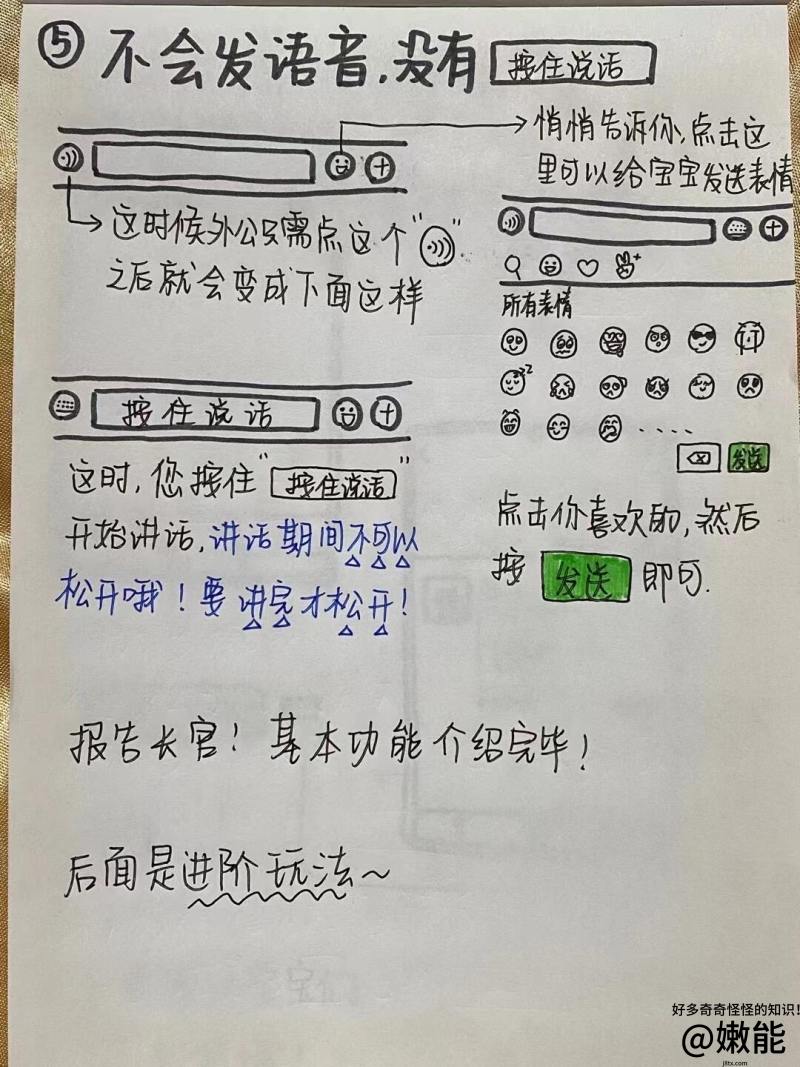 ⑤ 不会发语音,没有 按住说话
悄悄告诉你,点击这
里可以给宝宝发送表情
这时候外公只需点这个“ ”.
之后就会变成下面这样
所有表情
发送
点击你喜欢的,然后
按 发送 即可.
按住说话
这时,您按住“按住说话”
开始讲话,讲话期间不可以
松开哦!要讲完才松开!
报告长官!基本功能介绍完毕!
后面是进阶玩法~
好多奇奇怪怪的知识!
@嫩能
jlltx.com